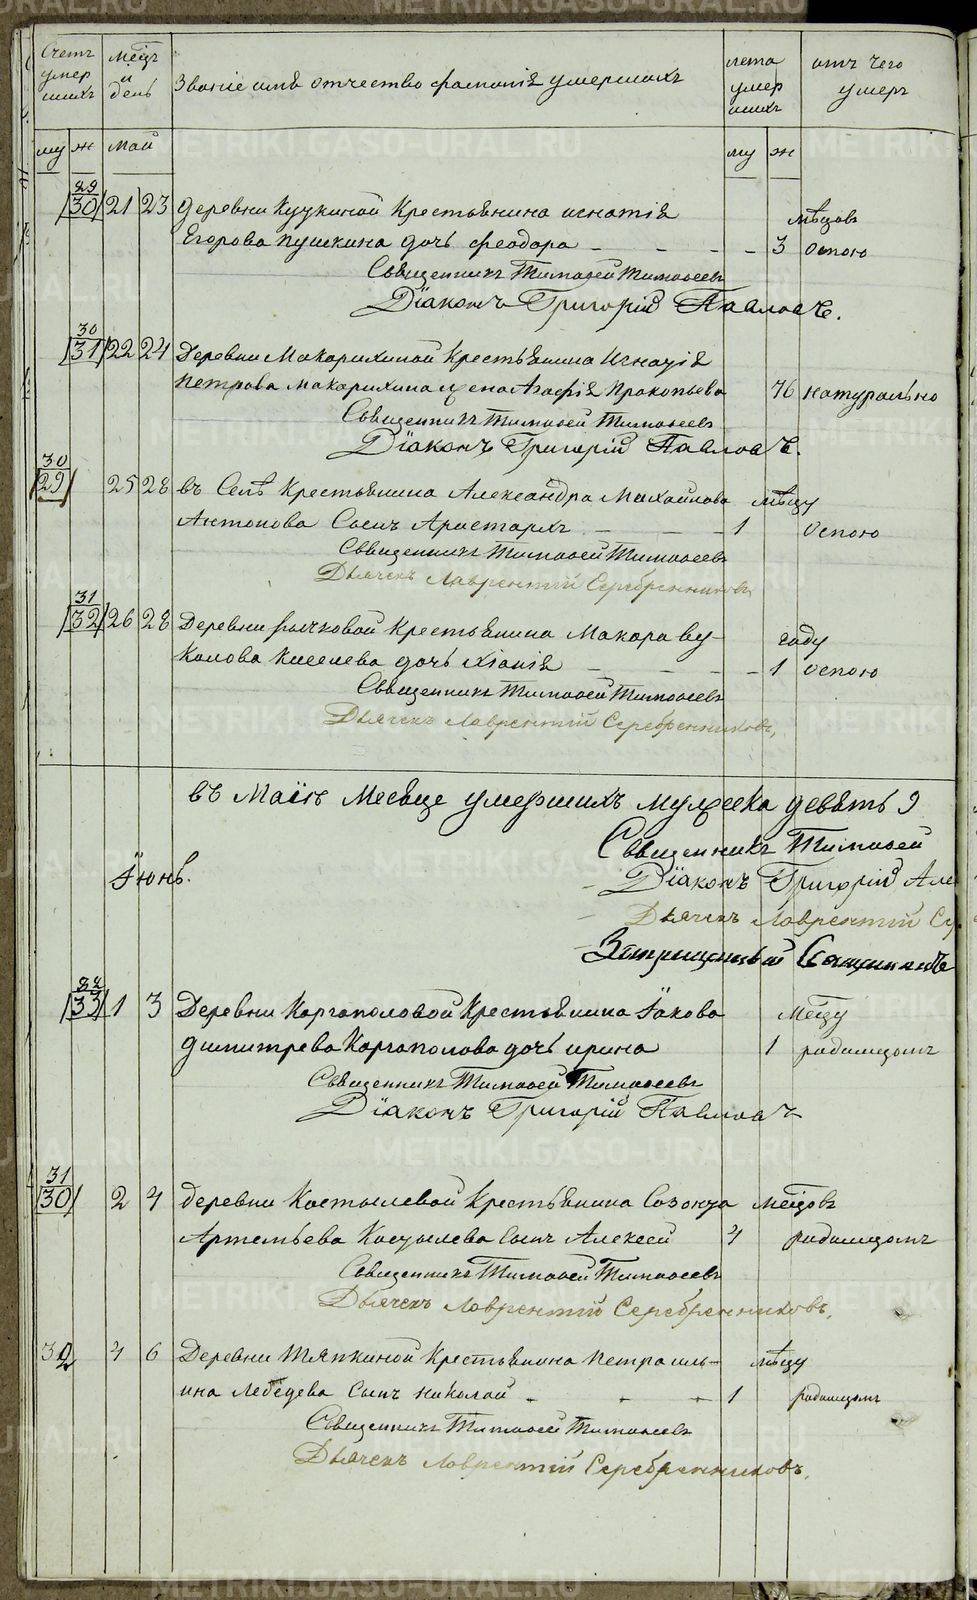 Счетъ умершихъ
Мѣцъ и день
Званіе имя отчество фамилія умершихъ
лета умершихъ
отъ чего умеръ
му ж Май му ж
29
30 21 23 Деревни Кучкиной Крестьянина Игнатія мѣцовъ
Егорова Пушкина дочь Феодора 3 оспою
Священникъ Тимофей Тимофеевъ
Діаконъ Григорій Павловъ.
30
31 22 24 Деревни Макарихиной Крестьянина Игнатія
Петрова Макарихина жена Агафія Прокопьева 76 натурально
Священникъ Тимофей Тимофеевъ
Діаконъ Григорій Павловъ.
30
29 25 28 въ Селѣ Крестьянина Александра Михайлова мѣцу
Антонова Сынъ Аристархъ 1 Оспою
Священникъ Тимофей Тимофеевъ
Дьячекъ Лаврентій Серебренниковъ
31
32 26 28 Деревни Рычковой Крестьянина Макара Ву- году
колова Киселева дочь Хіонія 1 оспою
Священникъ Тимофей Тимофеевъ
Дьячекъ Лаврентій Серебренниковъ,
въ Маіѣ Месяце умершихъ мужеска девять 9
Священникъ Тимофей
Июнь.
Діаконъ Григорій
Дьячекъ Лаврентій Се
33 1 3 Деревни Каргаполовой Крестьянина Іакова мѣцу
Димитрева Каргаполова дочь Ирина 1 родимцомъ
Священникъ Тимофей Тимофеевъ
Діаконъ Григорій Павловъ
31
30 2 4 Деревни Костылевой Крестьянина Созонта мецовъ
Артемьева Костылева Сынъ Алексей 4 родимцомъ
Священникъ Тимофей Тимофеевъ
Дьячекъ Лаврентій Серебренниковъ,
32 4 6 Деревни Тяпкиной Крестьянина Петра Иль- мѣцу
ина Лебедева Сынъ Николай 1 родимцом
Священникъ Тимофей Тимофеевъ
Дьячекъ Лаврентій Серебренниковъ,
METRIKI.GASO-URAL.RU